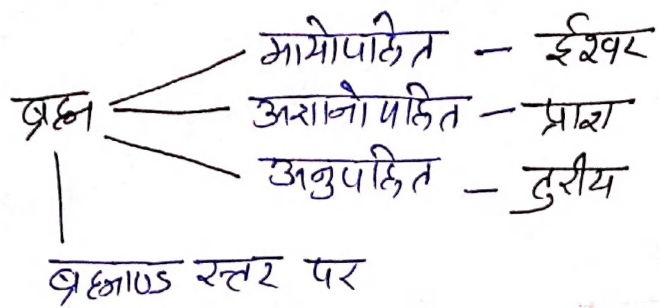 मायोपहित – ईश्वर
ब्रह्म अज्ञानोपहित – प्राज्ञ
अनुपहित – तुरीय
ब्रह्माण्ड स्तर पर